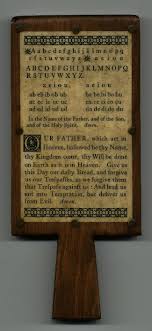 a b c d e f g h i j k l m n o p q
r s t u v w x y z & a e i o u
A B C D E F G H I J K L M N O P Q
R S T U V W X Y Z.
a e i o u a e i o u
ab eb ib ob ub
ac ec ic oc uc
ad ed id od ud
In the Name of the Father, and of the Son,
and of the Holy Spirit. Amen.
OUR FATHER, which art in
Heaven, hallowed be thy Name,
thy Kingdom come, thy Will be done
on Earth as it is in Heaven. Give us
this Day our daily Bread, and forgive
us our Treſpaſſes, as we forgive them
that Treſpaſs againſt us: And lead us
not into Temptation, but deliver us
from Evil. Amen.